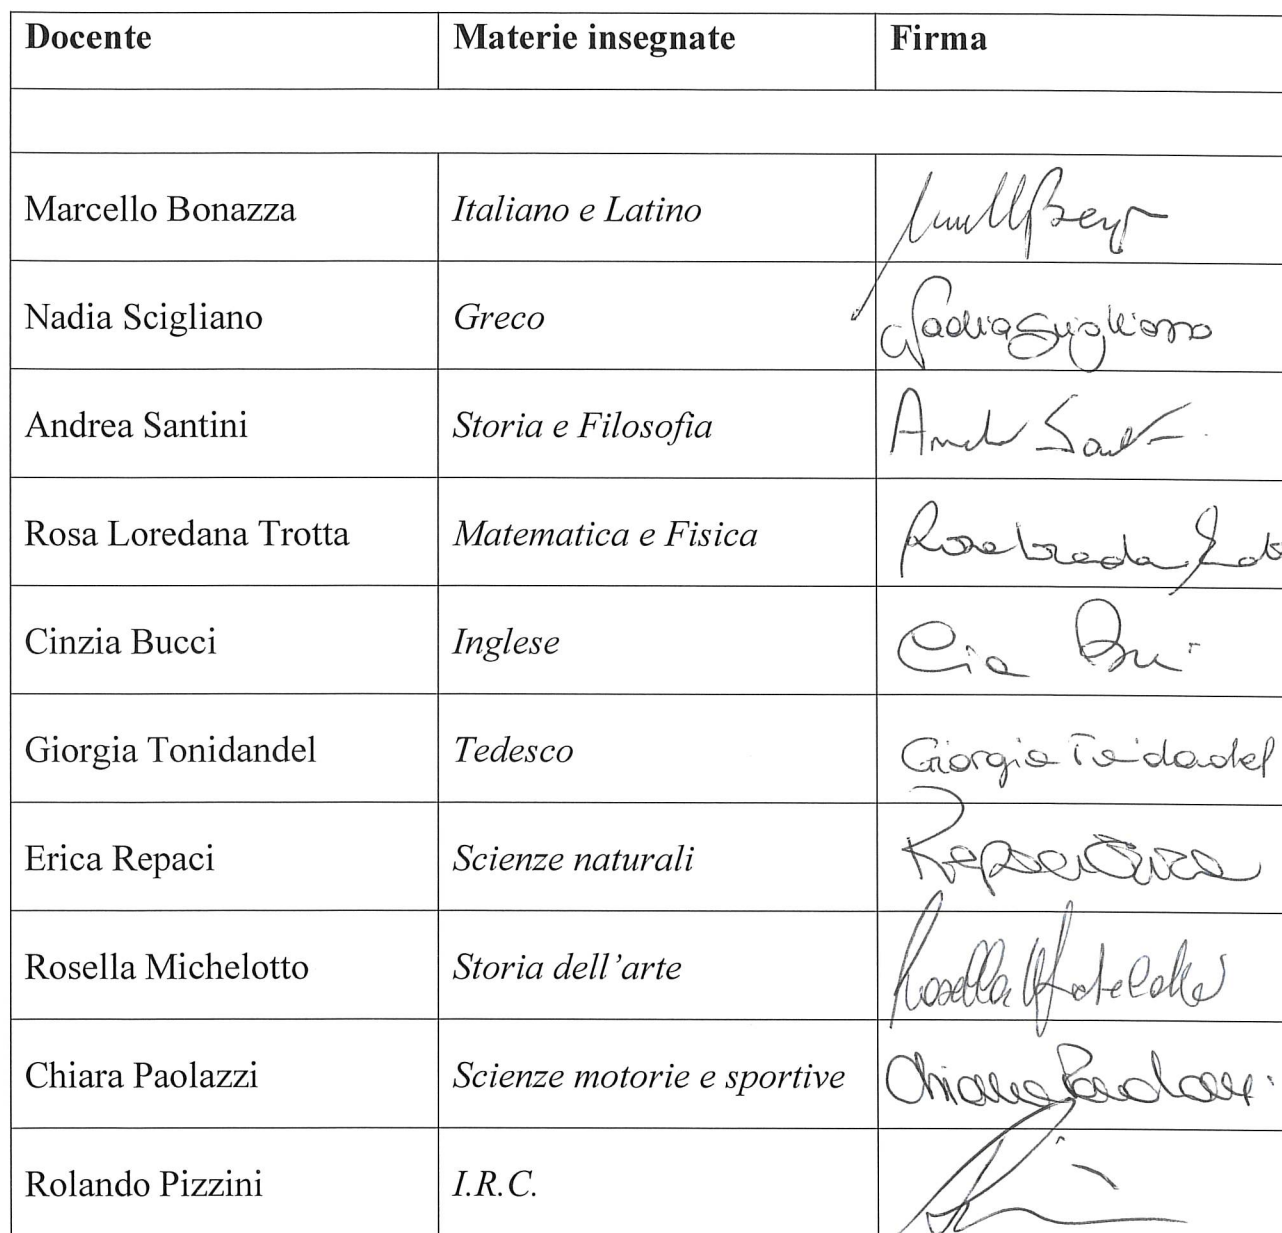 Docente Materie insegnate Firma
Marcello Bonazza Italiano e Latino
Nadia Scigliano Greco Nadia Scigliano
Andrea Santini Storia e Filosofia
Rosa Loredana Trotta Matematica e Fisica
Cinzia Bucci Inglese
Giorgia Tonidandel Tedesco Giorgia Tonidandel
Erica Repaci Scienze naturali Repaci Erica
Rosella Michelotto Storia dell'arte Rosella
Chiara Paolazzi Scienze motorie e sportive Chiara
Rolando Pizzini I.R.C.